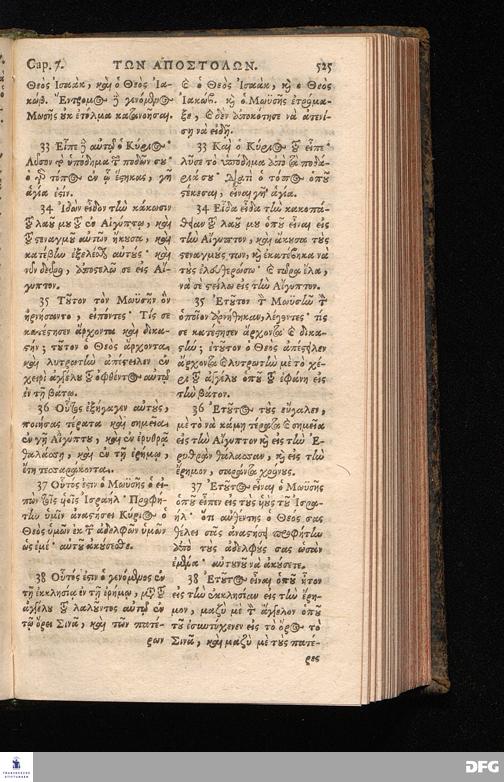 Cap. 7. ΤΩΝ ΑΠΟΣΤΟΛΩΝ. 525
Θεὸς Ἰσαὰκ, καὶ ὁ Θεὸς Ἰα-
κώβ. Ἔντρομος ἢ γενόμενος
Μωσῆς οὐκ ἐτόλμα κατανοῆσαι.
33 Εἶπε ἢ αὐτῷ ὁ Κύριος·
Λῦσον τὸ ὑπόδημα τῶν ποδῶν σου·
ὁ γὰρ τόπος ἐν ᾧ ἕστηκας, γῆ
ἁγία ἐστίν.
34 Ἰδὼν εἶδον τὴν κάκωσιν
τοῦ λαοῦ μου τοῦ ἐν Αἰγύπτῳ, καὶ
τοῦ στεναγμοῦ αὐτῶν ἤκουσα, καὶ
κατέβην ἐξελέσθαι αὐτούς· καὶ
νῦν δεῦρο, ἀποστελῶ σε εἰς Αἴ-
γυπτον.
35 Τοῦτον τὸν Μωϋσῆν ὃν
ἠρνήσαντο, εἰπόντες· Τίς σε
κατέστησεν ἄρχοντα καὶ δικα-
στήν; τοῦτον ὁ Θεὸς ἄρχοντα
καὶ λυτρωτὴν ἀπέστειλεν ἐν
χειρὶ ἀγγέλου τοῦ ὀφθέντος αὐτῷ
ἐν τῇ βάτῳ.
36 Οὗτος ἐξήγαγεν αὐτοὺς,
ποιήσας τέρατα καὶ σημεῖα
ἐν γῇ Αἰγύπτου, καὶ ἐν ἐρυθρᾷ
θαλάσσῃ, καὶ ἐν τῇ ἐρήμῳ,
ἔτη τεσσαράκοντα.
37 Οὗτός ἐστιν ὁ Μωϋσῆς ὁ εἰ-
πὼν τοῖς υἱοῖς Ἰσραήλ· Προφή-
την ὑμῖν ἀναστήσει Κύριος ὁ
Θεὸς ὑμῶν ἐκ τῶν ἀδελφῶν ὑμῶν
ὡς ἐμέ· αὐτοῦ ἀκούσεσθε.
38 Οὗτός ἐστιν ὁ γενόμενος ἐν
τῇ ἐκκλησίᾳ ἐν τῇ ἐρήμῳ, μετὰ τοῦ
ἀγγέλου τοῦ λαλοῦντος αὐτῷ ἐν
τῷ ὄρει Σινᾶ, καὶ τῶν πατέ-
ρων
καὶ ὁ Θεὸς Ἰσαὰκ, καὶ ὁ Θεὸς
Ἰακώβ. καὶ ὁ Μωϋσῆς ἐτρόμα-
ξε, καὶ δὲν ἀποκότησε νὰ ἀτενί-
σῃ νὰ εἰδῇ.
33 Καὶ ὁ Κύριος τοῦ εἶπε·
λῦσε τὸ ὑπόδημα ἀπὸ τὰ ποδά-
ρια σου· διατὶ ὁ τόπος ὁποῦ
στέκεσαι, εἶναι γῆ ἁγία.
34 Εἶδα εἶδα τὴν κακοπά-
θησιν τοῦ λαοῦ μου ὁποῦ εἶναι εἰς
τὴν Αἴγυπτον, καὶ ἄκουσα τοὺς
στεναγμούς των, καὶ ἐκατέβηκα νὰ
τοὺς ἐλευθερώσω· καὶ τώρα ἔλα,
νὰ σε στείλω εἰς τὴν Αἴγυπτον.
35 Ἐτοῦτον τὸν Μωϋσῆν τὸν
ὁποῖον ἀρνήθηκαν, λέγοντες· τίς
σε κατέστησεν ἄρχοντα καὶ δικα-
στήν; ἐτοῦτον ὁ Θεὸς ἀπέστειλεν
ἄρχοντα καὶ λυτρωτὴν μὲ τὸ χέ-
ρι τοῦ ἀγγέλου ὁποῦ τοῦ ἐφάνη εἰς
τὴν βάτον.
36 Ἐτοῦτος τοὺς εὔγαλεν,
μὲ τὸ νὰ κάμῃ τέρατα καὶ σημεῖα
εἰς τὴν Αἴγυπτον καὶ εἰς τὴν Ἐ-
ρυθρὰν θάλασσαν, καὶ εἰς τὴν
ἔρημον, σαράντα χρόνους.
37 Ἐτοῦτος εἶναι ὁ Μωϋσῆς
ὁποῦ εἶπεν εἰς τοὺς υἱοὺς τοῦ Ἰσρα-
ήλ· ὅτι αὐθέντης ὁ Θεός σας
θέλει σᾶς ἀναστήσῃ προφήτην
ἀπὸ τοὺς ἀδελφούς σας ὡσὰν
ἐμένα· αὐτουνοῦ νὰ ἀκούσετε.
38 Ἐτοῦτος εἶναι ὁποῦ ἦτον
εἰς τὴν ἐκκλησίαν εἰς τὴν ἔρη-
μον, μαζὺ μὲ τὸν ἄγγελον ὁποῦ
τοῦ ἐσυντύχενεν εἰς τὸ ὄρος τὸ
Σινᾶ, καὶ μαζὺ μὲ τοὺς πατέ-
ρες
DFG